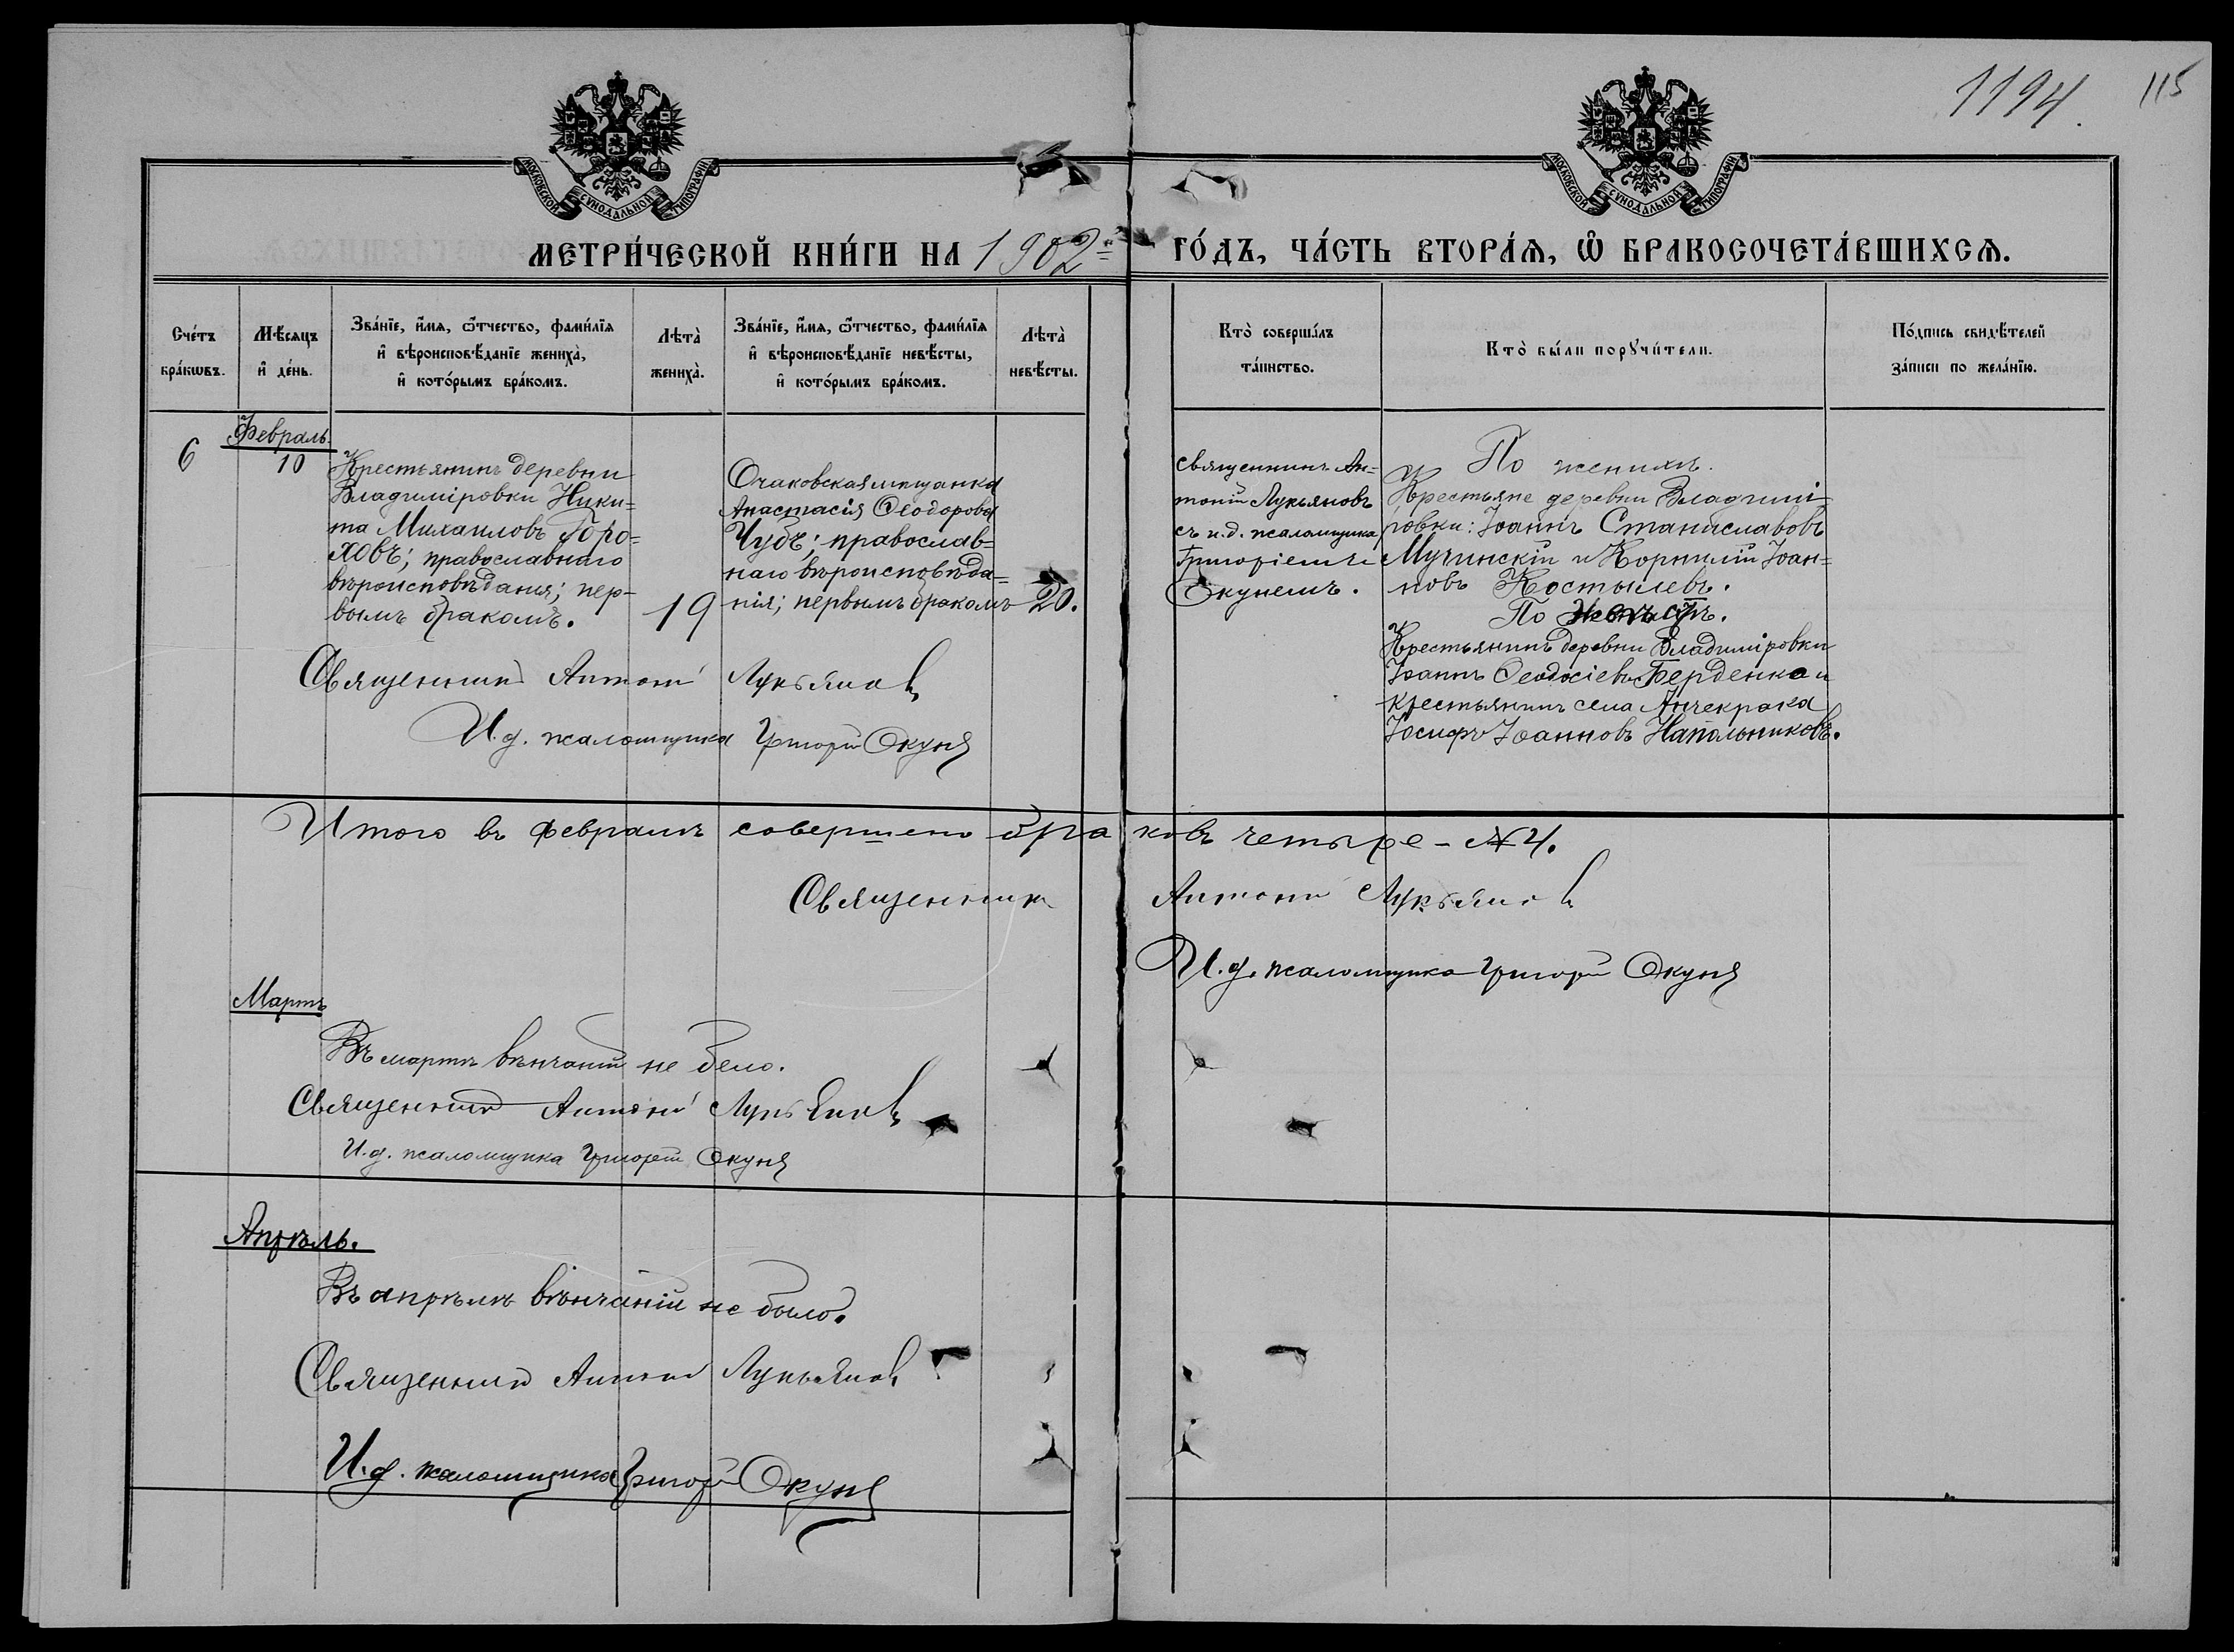 1194.
115
МОСКОВСКОЙ СѴНОДАЛЬНОЙ ТИПОГРАФІИ
МОСКОВСКОЙ СѴНОДАЛЬНОЙ ТИПОГРАФІИ
МЕТРИ́ЧЕСКОЙ КНИ́ГИ НА 1902й ГО́ДЪ, ЧА́СТЬ ВТОРА́Я, Ѽ БРАКОСОЧЕТА́ВШИХСЯ.
Сче́тъ
бра́кѡвъ.
Мѣ́сяцъ
и҆ де́нь.
Зва́нїе, и҆́мя, ѻ҆́тчество, фами́лїя
и҆ вѣроисповѣ́данїе жениха̀,
и҆ кото́рымъ бра́комъ.
Лѣта̀
жениха̀.
Зва́нїе, и҆́мя, ѻ҆́тчество, фами́лїя
и҆ вѣроисповѣ́данїе невѣ́сты,
и҆ кото́рымъ бра́комъ.
Лѣта̀
невѣ́сты.
Кто̀ соверша́лъ
та́инство.
Кто̀ бы́ли порꙋчи́тели.
По́дпись свидѣ́телей
за́писи по жела́нїю.
6
Февраль.
10
Крестьянинъ деревни
Владиміровки Ники=
та Михаиловъ Горо=
ховъ; православнаго
вѣроисповѣданія; пер-
вымъ бракомъ.
19
Очаковская мѣщанка
Анастасія Ѳеодорова
Чубъ; православ=
наго вѣроисповѣда=
нія; первымъ бракомъ
20.
Священникъ Ан=
тоній Лукьяновъ
съ и.д. псаломщика
Григоріемъ
Окунемъ.
По женихѣ.
Крестьяне деревни Владимі
ровки: Іоаннъ Станиславовъ
Мучинскій и Корнилій Іоан=
новъ Костылевъ.
По невѣстѣ.
Крестьянинъ деревни Владиміровки
Іоаннъ Ѳеодосіевъ Берденко и
крестьянинъ села Анчекрака
Іосифъ Іоанновъ Напольниковъ.
Священникъ Антоній Лукьяновъ
И.д. псаломщика Григорій Окунь
Итого въ февралѣ совершено браковъ четыре - № 4.
Священникъ Антоній Лукьяновъ
И.д. псаломщика Григорій Окунь
Мартъ
Въ мартѣ вѣнчаній не было.
Священникъ Антоній Лукьяновъ
И.д. псаломщика Григорій Окунь
Апрѣль.
Въ апрѣлѣ вѣнчаній не было.
Священникъ Антоній Лукьяновъ
И.д. псаломщика Григорій Окунь